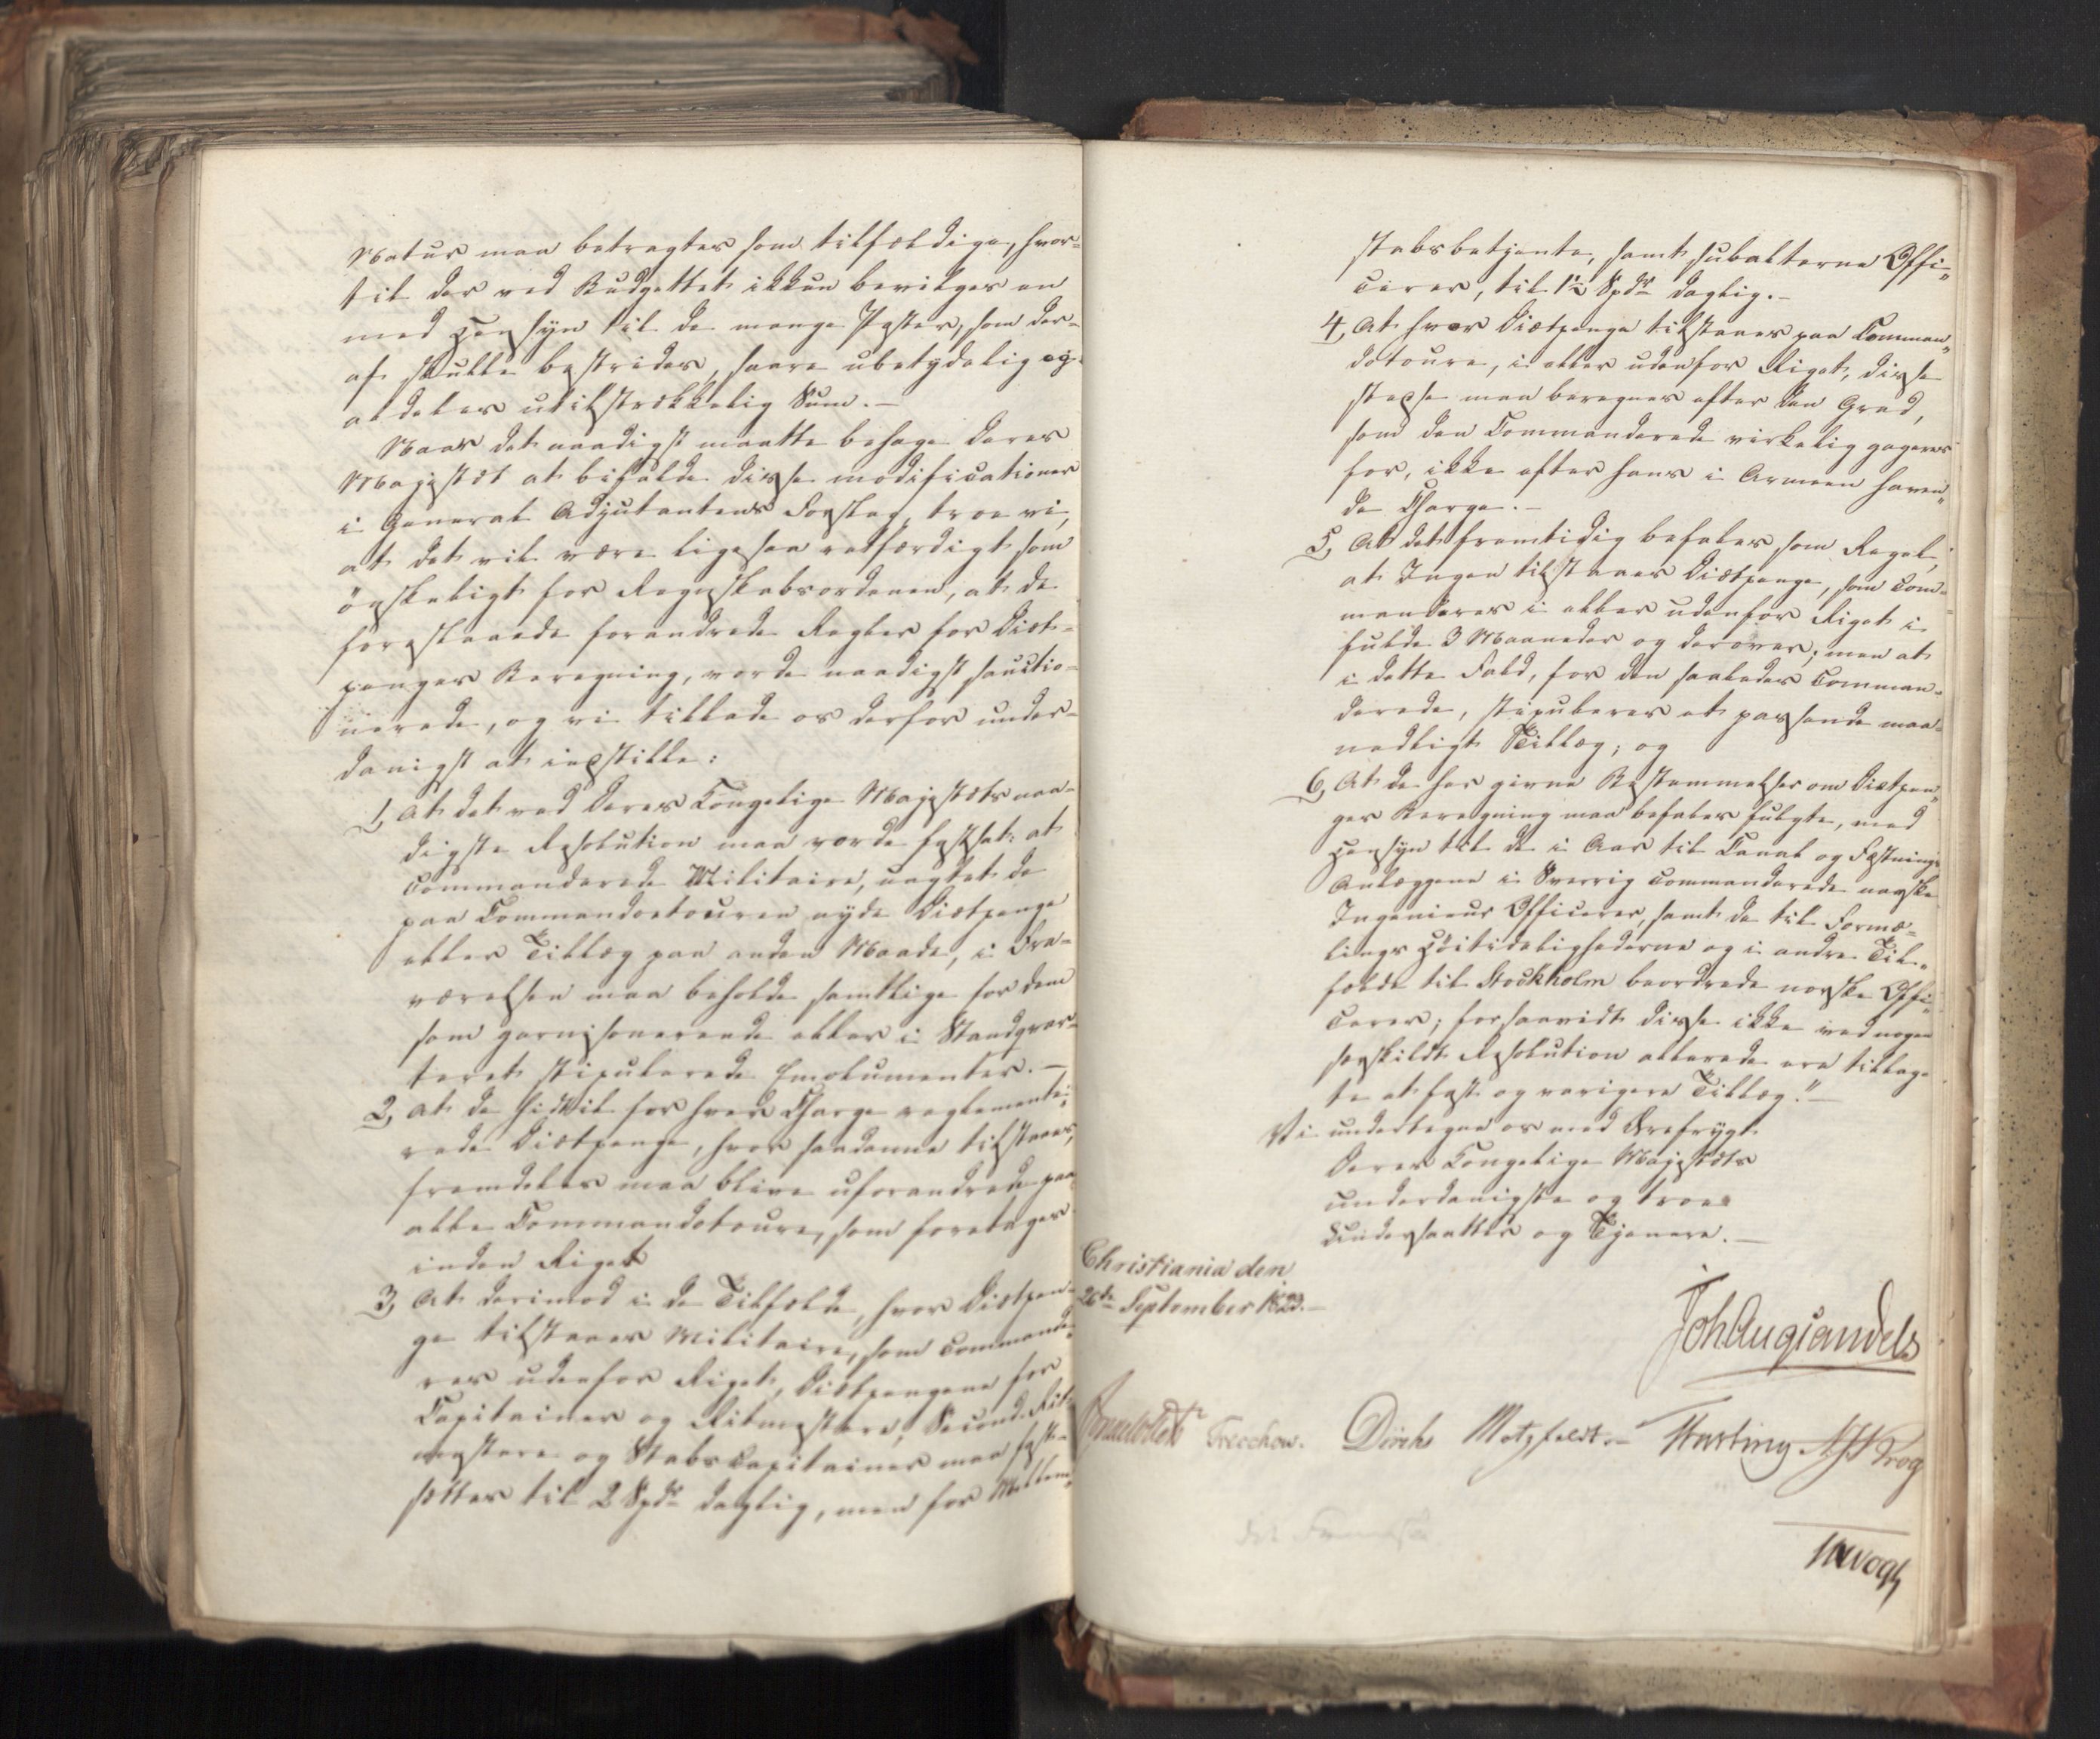 Natur maa betragtes som tilfældige, hvor-
til der ved Budgettet ikkun bevilges en
med Hensyn til de mange Poster, som der-
af skulle bestrides, saare ubetydelig og
aldeles utilstrækkelig Sum.-
Naar det naadigst maatte behage Deres
Majestæt at bifalde disse modificationer
i General Adjutantens Forslag, troe vi,
at det vil være ligesaa retfærdigt som
önskeligt for Regnskabsordenen, at de
foreslaaede forandrede Regler for Diæt-
penges Beregning, vorde naadigst sanctio-
nerede, og vi tillade os derfor under-
danigst at indstille:
1, At det ved Deres Kongelige Majestæts naa-
digste Resolution maa vorde fastsat: at
Commanderede Militaire, uagtet de
paa Commandoetouren nyde Diætpenge
eller Tillæg paa anden Maade, i Fra-
værelsen maa beholde samtlige for dem
som garnisonerende eller i Standqvar-
teret stipulerede Emolumenter.-
2, at de hidtil for hver Charge reglemente-
rede Diætpenge, hvor saadanne tilstaaes,
fremdeles maa blive uforandrede paa
alle Commandotoure, som foretages
inden Riget
3, At derimod i de Tilfælde, hvor Diætpen-
ge tilstaaes Militaire, som commande-
res udenfor Riget, Diætpengene for
Capitainer og Ritmestere, Second-Rit-
mestere og Stabscapitainer maa fast-
sættes til 2 Spdr daglig, men for Mellem-
stabsbetjente, samt subalterne Offi-
cierer, til 1½ Spdr daglig.-
4, At hvor Diætpenge tilstaaes paa Comman-
dotoure, i eller udenfor Riget, disse
stedse maa beregnes efter den Grad,
som den Commanderede virkelig gageres
for, ikke efter hans i Armeen haven-
de Charge.-
5, At det fremtidig befales som Regel,
at Ingen tilstaaes Diætpenge, som com-
manderes i eller udenfor Riget i
fulde 3 Maaneder og derover; men at
i dette Fald, for den saaledes Comman-
derede, stipuleres et passende maa-
nedligt Tillæg; og
6, At de her givne Bestemmelser om Diætpen-
ges Beregning maa befales fulgte, med
Hensyn til de i Aar til Canal og Fæstnings
Anlæggene i Sverrig commanderede norske
Ingenieur Officerer, samt de til Formæ-
lings Höitidelighederne og i andre Til-
fælde til Stockholm beordrede norske Offi-
cerer; forsaavidt disse ikke ved nogen
særskildt Resolution allerede ere tillag-
te et fast og varigere Tillæg."-
Vi undertegne os med Ærefrygt
Deres Kongelige Majestæts
underdanigste og troe
Undersaatter og Tjenere.-
Christiania den
26de September 1823.-
Joh Aug Sandels
Treschow. Diriks Motzfeldt Hasting
Vogt